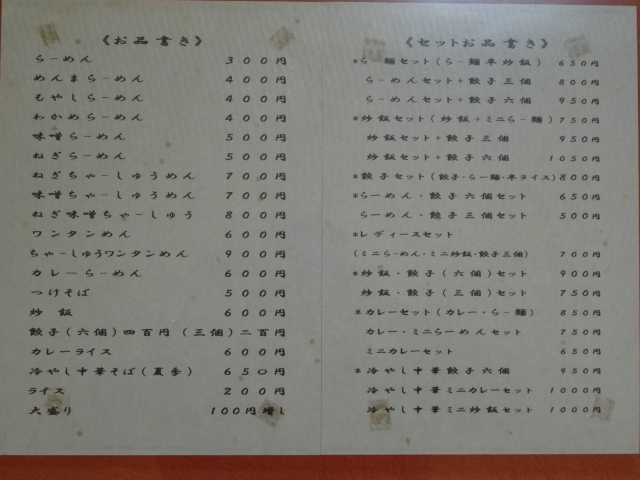 《お品書き》
らーめん 300円
めんまらーめん 400円
もやしらーめん 400円
わかめらーめん 400円
味噌らーめん 500円
ねぎらーめん 500円
ねぎちゃーしゅうめん 700円
味噌ちゃーしゅうめん 700円
ねぎ味噌ちゃーしゅう 800円
ワンタンめん 600円
ちゃーしゅうワンタンめん 900円
カレーらーめん 600円
つけそば 500円
炒飯 600円
餃子(六個)四百円(三個)二百円
カレーライス 600円
冷やし中華そば(夏季) 650円
ライス 200円
大盛り 100円増し
《セットお品書き》
*らー麺セット(らー麺半炒飯) 650円
らーめんセット+餃子三個 800円
らーめんセット+餃子六個 950円
*炒飯セット(炒飯+ミニらー麺) 750円
炒飯セット+餃子三個 950円
炒飯セット+餃子六個 1050円
*餃子セット(餃子・らー麺・半ライス) 800円
*らーめん・餃子六個セット 650円
らーめん・餃子三個セット 500円
*レディースセット
(ミニらーめん・ミニ炒飯・餃子三個) 700円
*炒飯・餃子(六個)セット 900円
炒飯・餃子(三個)セット 750円
*カレーセット(カレー・らー麺) 850円
カレー・ミニらーめんセット 750円
ミニカレーセット 650円
*冷やし中華餃子六個 950円
冷やし中華ミニカレーセット 1000円
冷やし中華ミニ炒飯セット 1000円